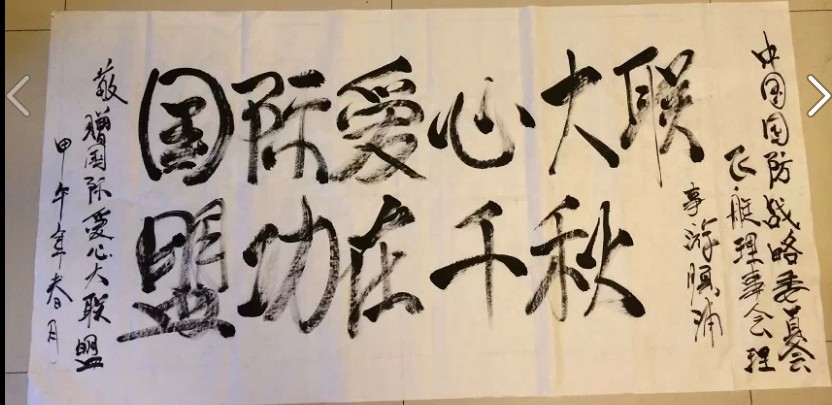 国际爱心大联
盟功在千秋
中国国防战略委员会
飞艇理事会理
事游顺浦
敬赠国际爱心大联盟
甲午年春月